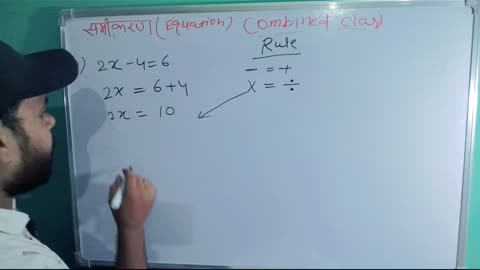 समीकरण (Equation) Combined class
) 2x-4=6
2x = 6+4
2x = 10
Rule
- = +
x = ÷